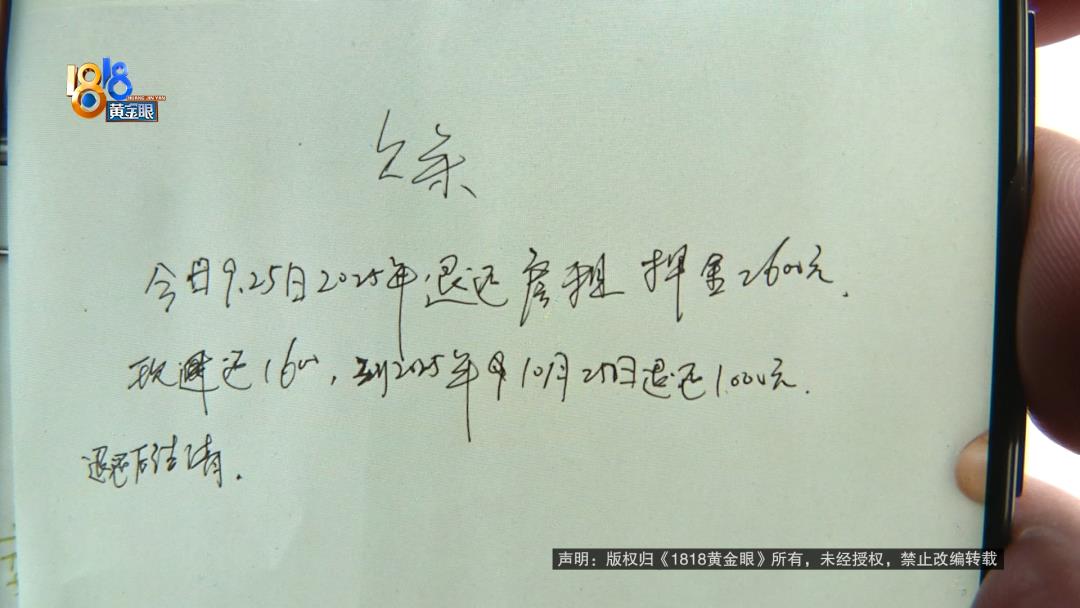 1818
HUANG JIN YAN
黄金眼
欠条
今日9.25日2025年退还房租押金2600元.
现退还1600,到2025年10月25日退还1.000元.
退还后结清.
声明：版权归《1818黄金眼》所有，未经授权，禁止改编转载